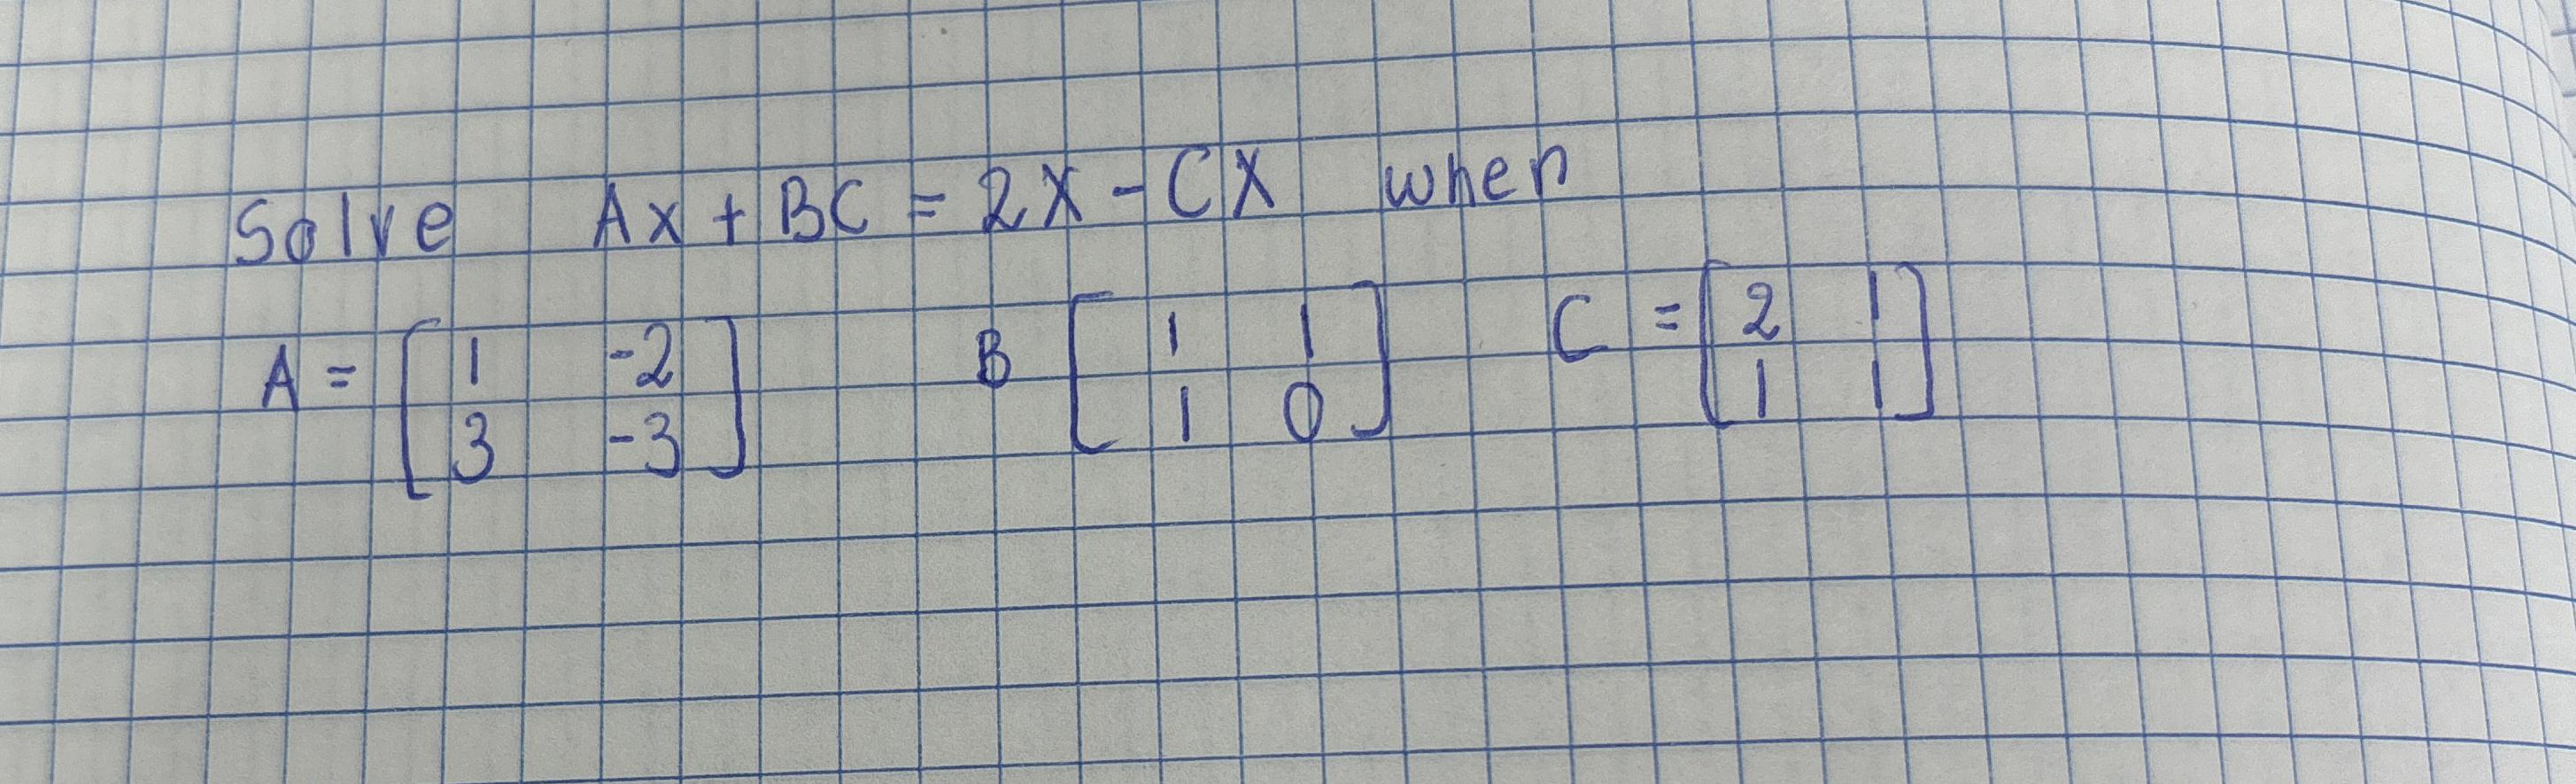 Solve Ax + BC = 2X - CX when
A = [1 -2 3 -3] B [1 1 1 0] C = [2 1 1 1]